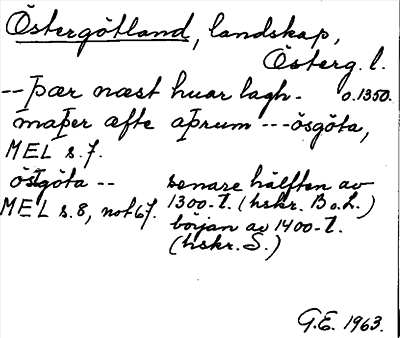 Östergötland, landskap,
Österg. l.
-- þær næst huar lagh- o.1350.
maþer æfte aþrum --- ösgöta,
MEL s.7.
östgöta -- senare hälften av
MEL s.8, not 67. 1300-t. (hskr. B o. L.)
början av 1400-t.
(hskr. S.)
G.E. 1963.